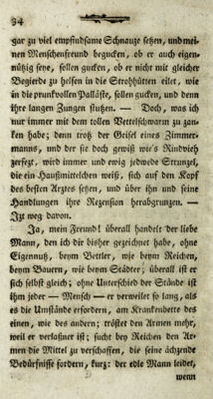 94
gar zu viel empfindsame Schnauze setzen, und mei-
nen Menschenfreund begucken, ob er auch eigen-
nützig seye, sollen gucken, ob er nicht mit gleicher
Begierde zu helfen in die Strohhütten eilet, wie
in die prunkvollen Palläste, sollen gucken, und denn
ihre langen Zungen stutzen. — Doch, was ich
nur immer mit dem tollen Vettelschwarm zu zan-
ken habe; denn trotz der Geisel eines Zimmer-
manns, und der sie doch gewiß wie's Rindvieh
zerfezt, wird immer und ewig jedwede Strunzel,
die ein Hausmittelchen weiß, sich auf den Kopf
des besten Arztes setzen, und über ihn und seine
Handlungen ihre Rezension herabgrunzen. —
Izt weg davon.
Ja, mein Freund! überall handelt der liebe
Mann, den ich dir bisher gezeichnet habe, ohne
Eigennutz, beym Bettler, wie beym Reichen,
beym Bauern, wie beym Städter; überall ist er
sich selbst gleich; ohne Unterschied der Stände ist
ihm jeder — Mensch — er verweilet so lang, als
es die Umstände erfordern, am Krankenbette des
einen, wie des andern; tröstet den Armen mehr,
weil er verlaßner ist; sucht bey Reichen den Ar-
men die Mittel zu verschaffen, die seine ächzende
Bedürfnisse fordern, kurz: der edle Mann leidet,
wenn